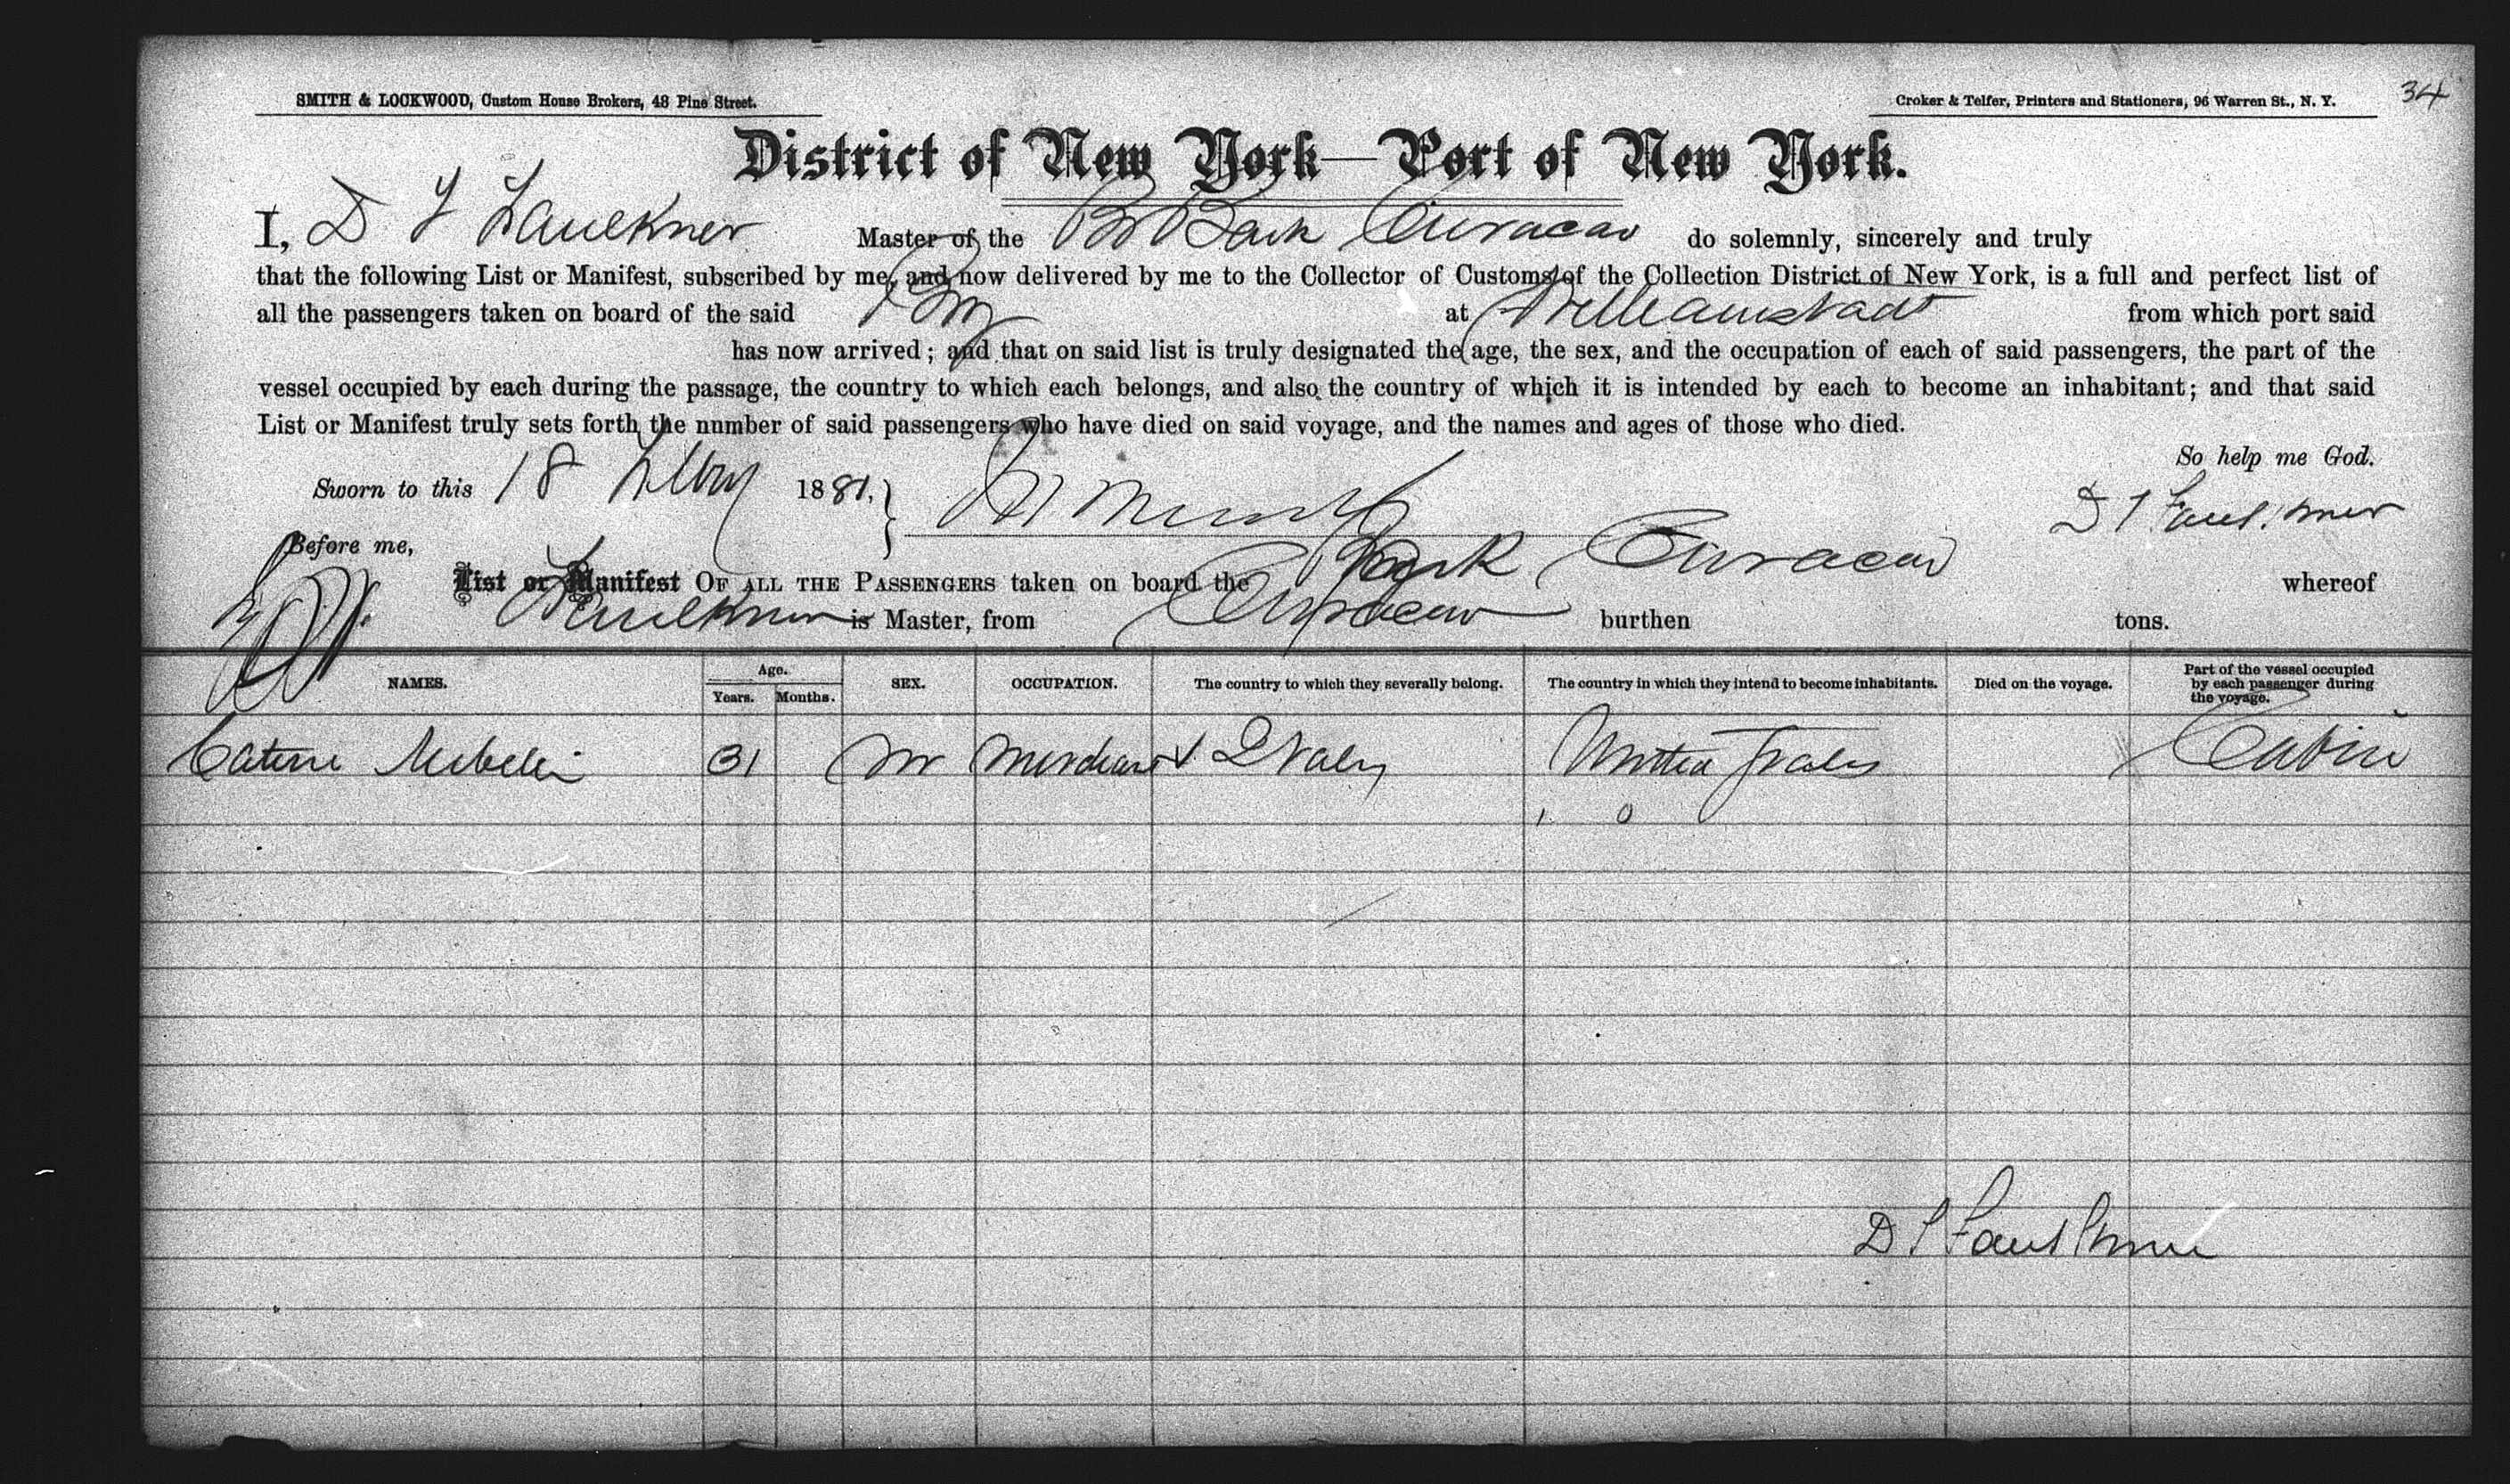 SMITH & LOCKWOOD, Custom House Brokers, 48 Pine Street.
Croker & Telfer, Printers and Stationers, 96 Warren St., N. Y.
34
District of New York—Port of New York.
I, D F Faulkner Master of the Br Bark Curacao do solemnly, sincerely and truly
that the following List or Manifest, subscribed by me, and now delivered by me to the Collector of Customs of the Collection District of New York, is a full and perfect list of
all the passengers taken on board of the said at Willeamstadt from which port said
has now arrived; and that on said list is truly designated the age, the sex, and the occupation of each of said passengers, the part of the
vessel occupied by each during the passage, the country to which each belongs, and also the country of which it is intended by each to become an inhabitant; and that said
List or Manifest truly sets forth the number of said passengers who have died on said voyage, and the names and ages of those who died.
So help me God.
Sworn to this 18 Feby 1881,
D F Faulkner
Before me,
List or Manifest OF ALL THE PASSENGERS taken on board the Bark Curacao whereof
Faulkner is Master, from Curacao burthen tons.
NAMES. Age. Years. Months. SEX. OCCUPATION. The country to which they severally belong. The country in which they intend to become inhabitants. Died on the voyage. Part of the vessel occupied by each passenger during the voyage.
31 M Merchant Italy United States Cabin
D F Faulkner